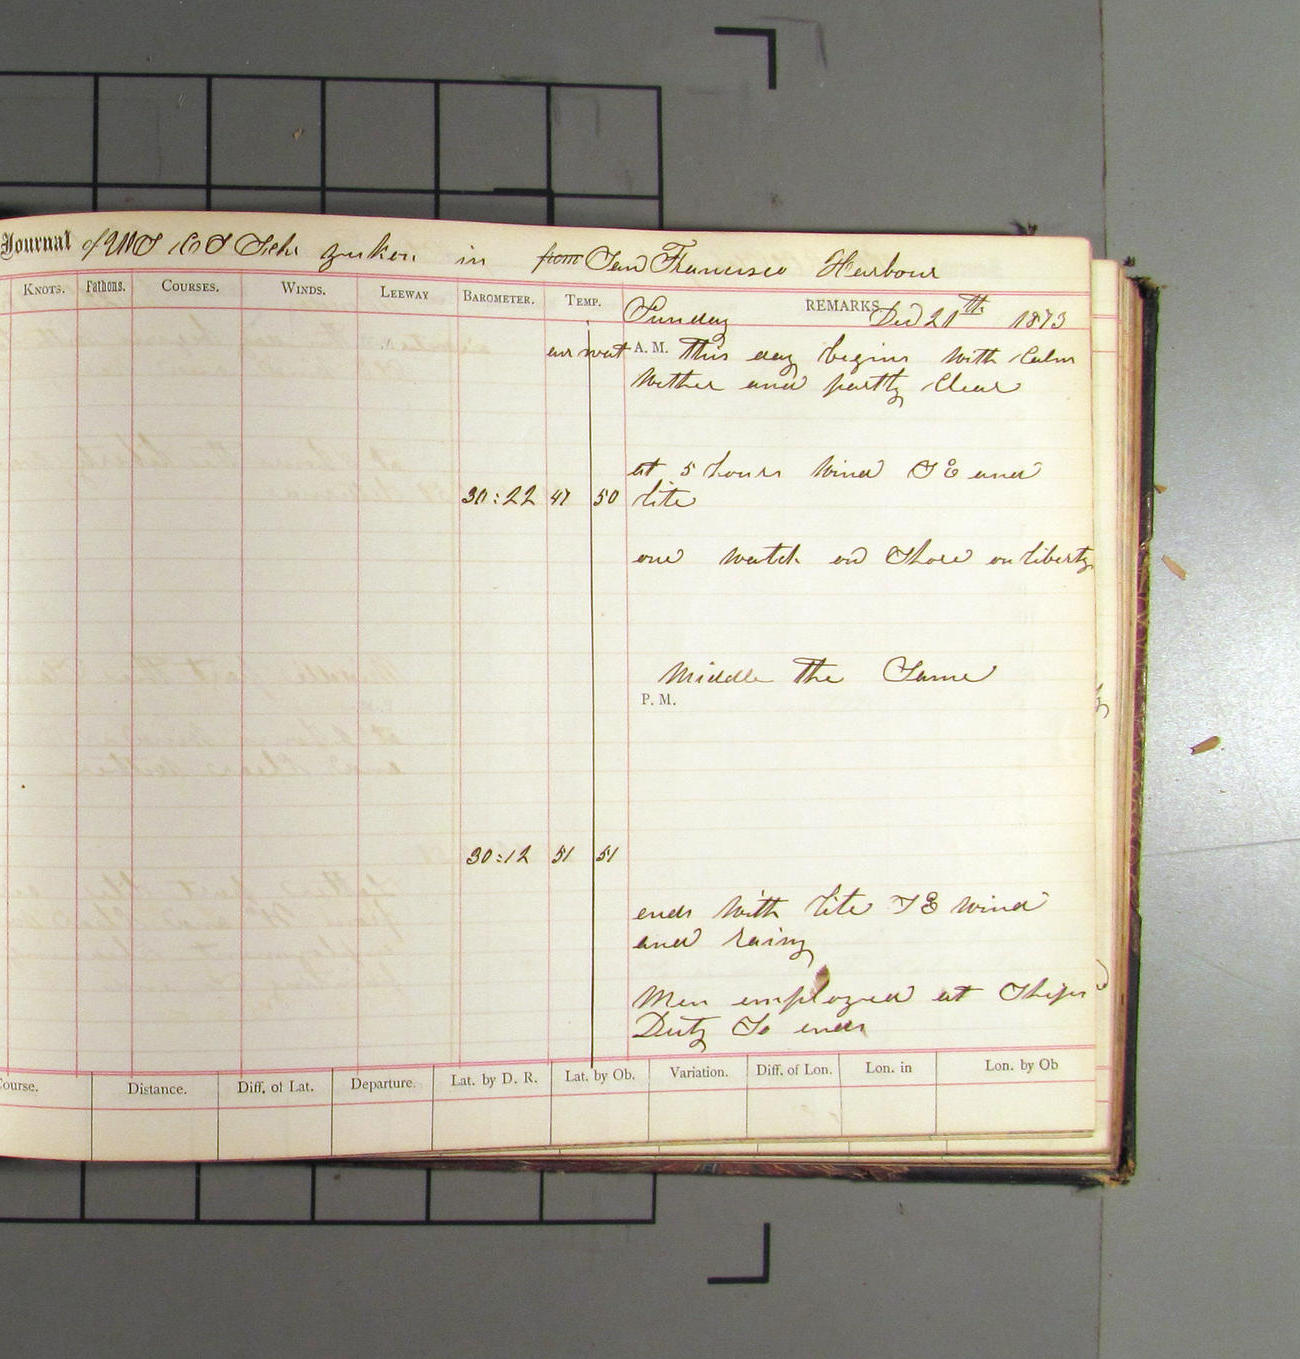 Journal of U S C S Schr Yukon in from San Francisco Harbour
KNOTS. Fathoms. COURSES. WINDS. LEEWAY BAROMETER. TEMP. REMARKS
Sunday Dec 21th 1873
air wat A. M. this day begins with Calm
wether and partly Clear
at 5 hours wind S E and
30:22 47 50 lite
one watch on Shore on liberty
Middle the Same
P. M.
30:12 51 51
ends with lite S E wind
and rainy
Men employed at Ships
Duty So ends
Course. Distance. Diff. of Lat. Departure. Lat. by D. R. Lat. by Ob. Variation. Diff. of Lon. Lon. in Lon. by Ob